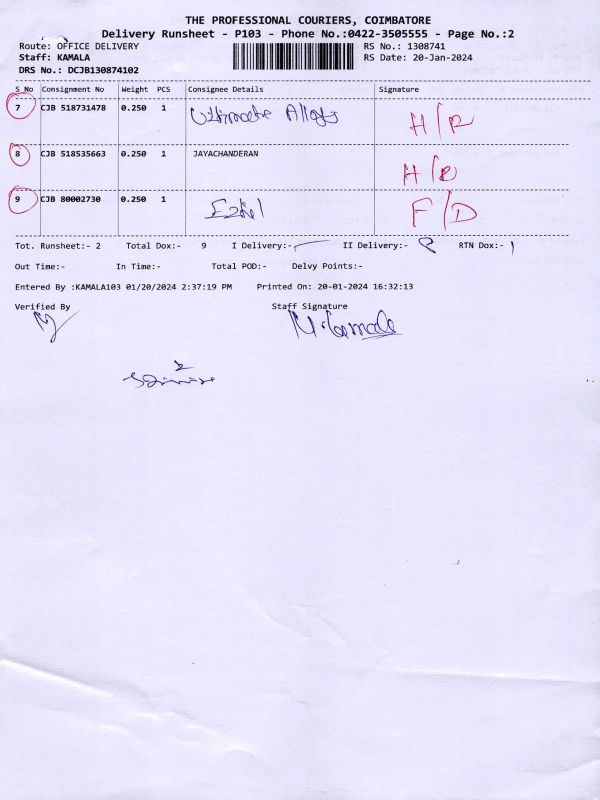 THE PROFESSIONAL COURIERS, COIMBATORE
Delivery Runsheet - P103 - Phone No.:0422-3505555 - Page No.:2
Route: OFFICE DELIVERY RS No.: 1308741
Staff: KAMALA RS Date: 20-Jan-2024
DRS No.: DCJB130874102
S No Consignment No Weight PCS Consignee Details Signature
7 CJB 518731478 0.250 1 Ultimate Alloys H/R
8 CJB 518535663 0.250 1 JAYACHANDERAN H/R
9 CJB 80002730 0.250 1 F/D
Tot. Runsheet:- 2 Total Dox:- 9 I Delivery:- II Delivery:- 8 RTN Dox:- 1
Out Time:- In Time:- Total POD:- Delvy Points:-
Entered By :KAMALA103 01/20/2024 2:37:19 PM Printed On: 20-01-2024 16:32:13
Verified By Staff Signature
N. Kamala